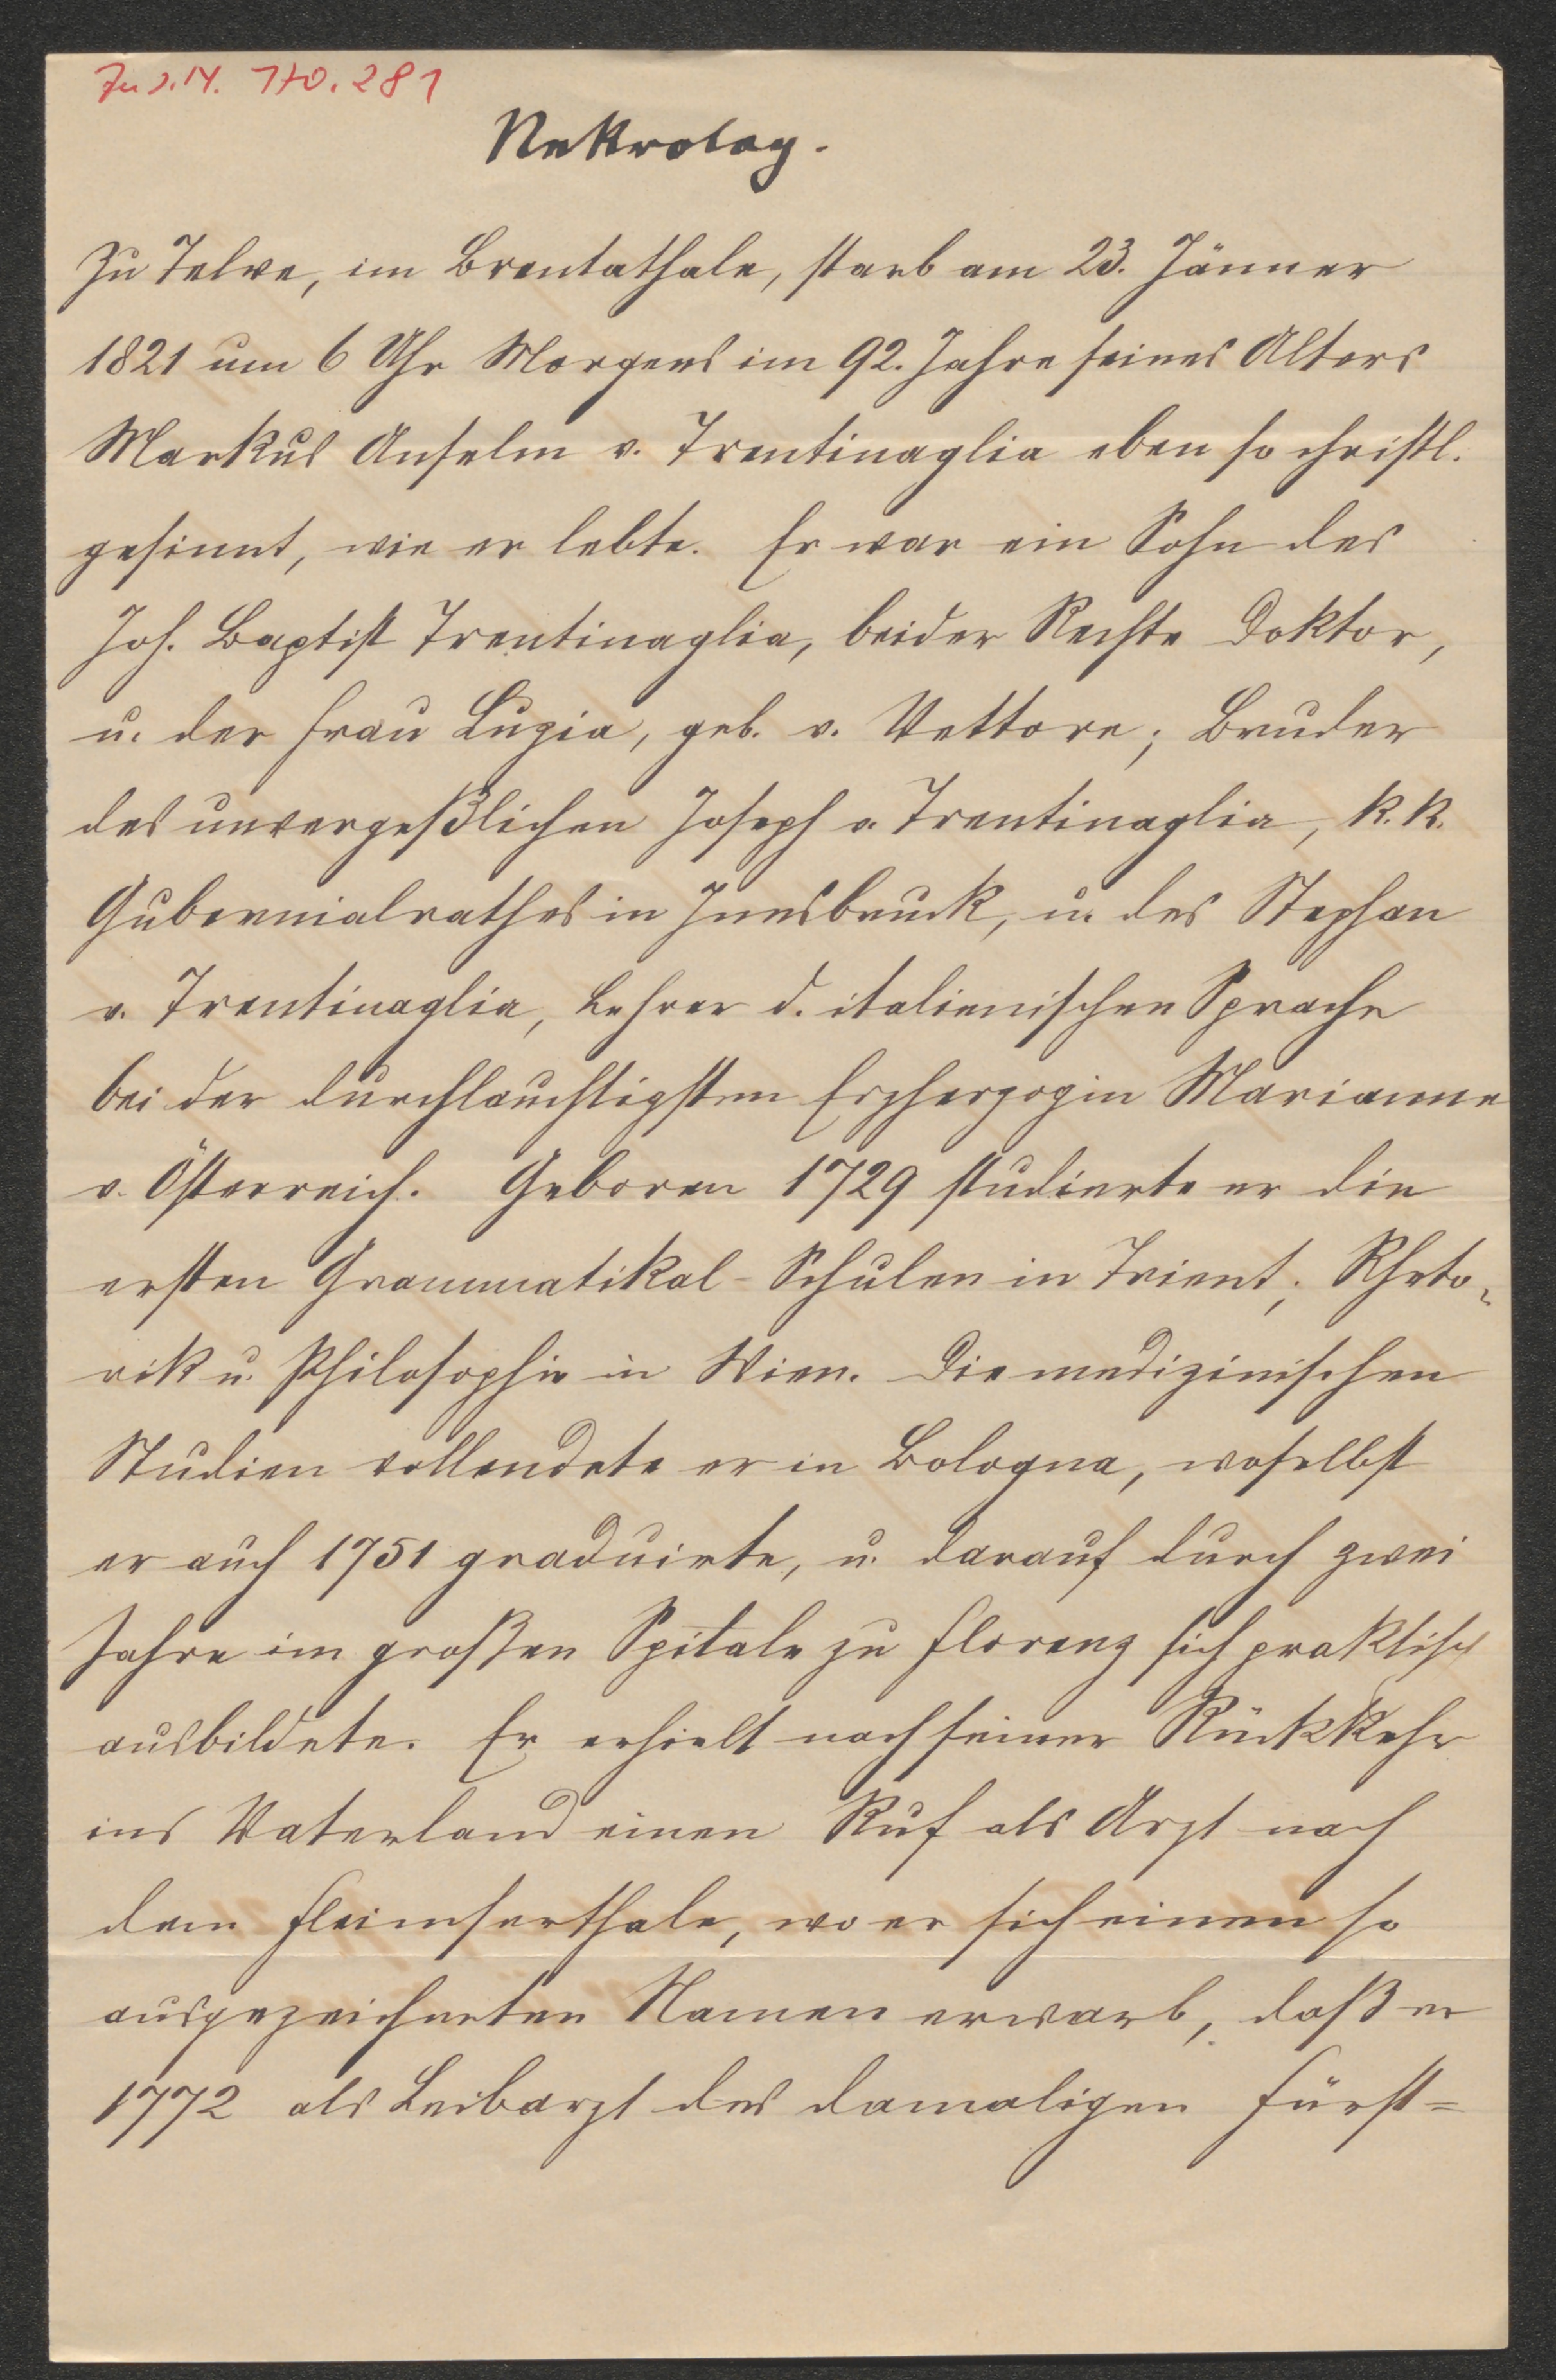 170.281
Nekrolog.
Zu Telve, im Brentathale, starb am 23. Jänner
1821 um 6 Uhr Morgens im 92. Jahre seines Alters
Markus Anselm v. Trentinaglia eben so christl.
gesinnt, wie er lebte. Er war ein Sohn des
Joh. Baptist Trentinaglia, beider Rechte Doktor,
u. der Frau Luzia, geb. v. Vettore; Bruder
des unvergeßlichen Joseph v. Trentinaglia, k. k.
Gubernialrathes in Innsbruck, u. des Stephan
v. Trentinaglia, Lehrer d. italienischen Sprache
bei der durchlauchtigsten Erzherzogin Marianne
v. Österreich. Geboren 1729 studierte er die
ersten Grammatikal-Schulen in Trient; Rheto-
rik u. Philosophie in Wien. Die medizinischen
Studien vollendete er in Bologna, woselbst
er auch 1751 graduirte, u. darauf durch zwei
Jahre im großen Spitale zu Florenz sich praktisch
ausbildete. Er erhielt nach seiner Rückkehr
ins Vaterland einen Ruf als Arzt nach
dem Fleimserthale, wo er sich einen so
ausgezeichneten Namen erwarb, daß er
1772 als Leibarzt des damaligen Fürst=